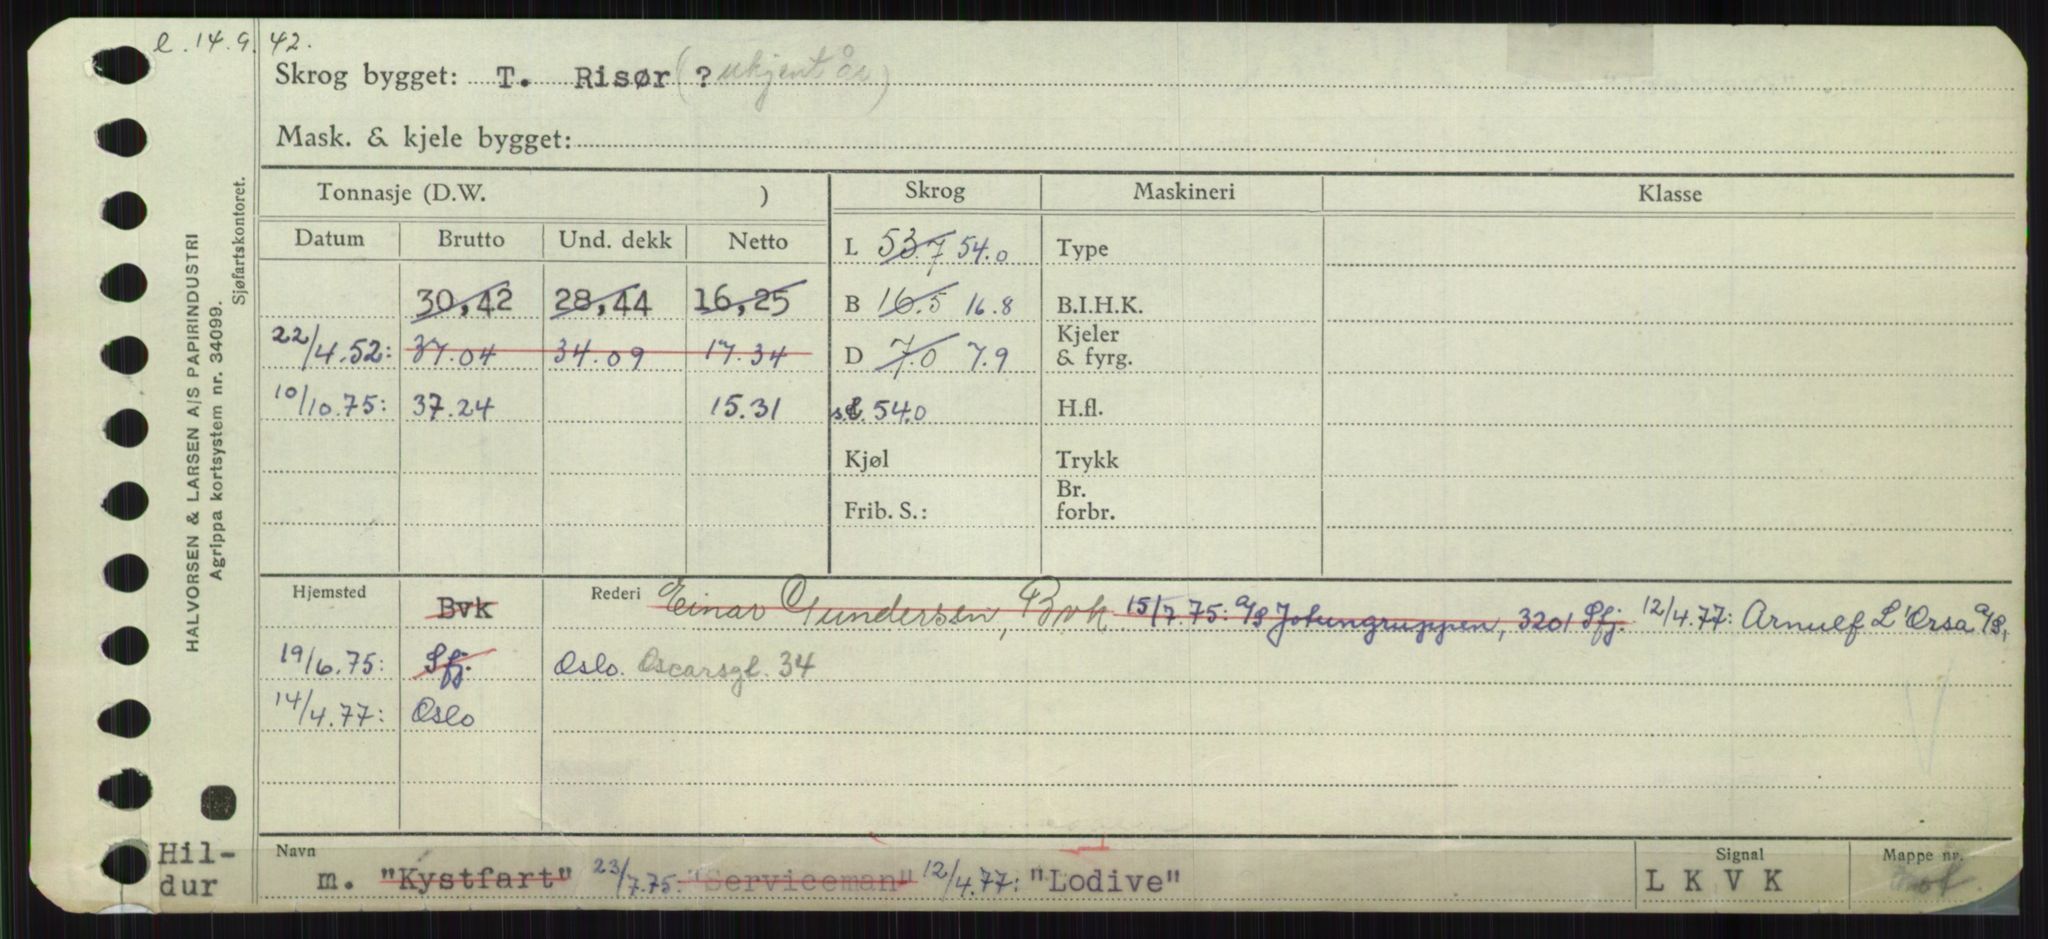 e. 14.9.42.
Skrog bygget: T. Risør (? ukjent år)
Mask. & kjele bygget:
HALVORSEN & LARSEN A/S PAPIRINDUSTRI
Agrippa kortsystem nr. 34099.
Sjøfartskontoret.
Tonnasje (D.W. ) Skrog Maskineri Klasse
Datum Brutto Und. dekk Netto
L 53.7 54.0 Type
30,42 28,44 16,25 B 16.5 16.8 B.I.H.K.
22/4.52: 37.04 34.09 17.34 D 7.0 7.9 Kjeler
& fyrg.
10/10.75: 37.24 15.31 s.l. 54.0 H.fl.
Kjøl Trykk
Frib. S.: Br.
forbr.
Hjemsted Bvk Rederi Einar Gundersen, Bvk 15/7.75: A/S Jotungruppen, 3201 Sfj. 12/4.77: Arnulf L'Orsa A/S,
19/6.75: Sfj. Oslo. Oscarsgt. 34
14/4.77: Oslo
Hil-
dur
Navn Signal Mappe nr.
m. "Kystfart" 23/7.75: "Serviceman" 12/4.77: "Lodive" L K V K